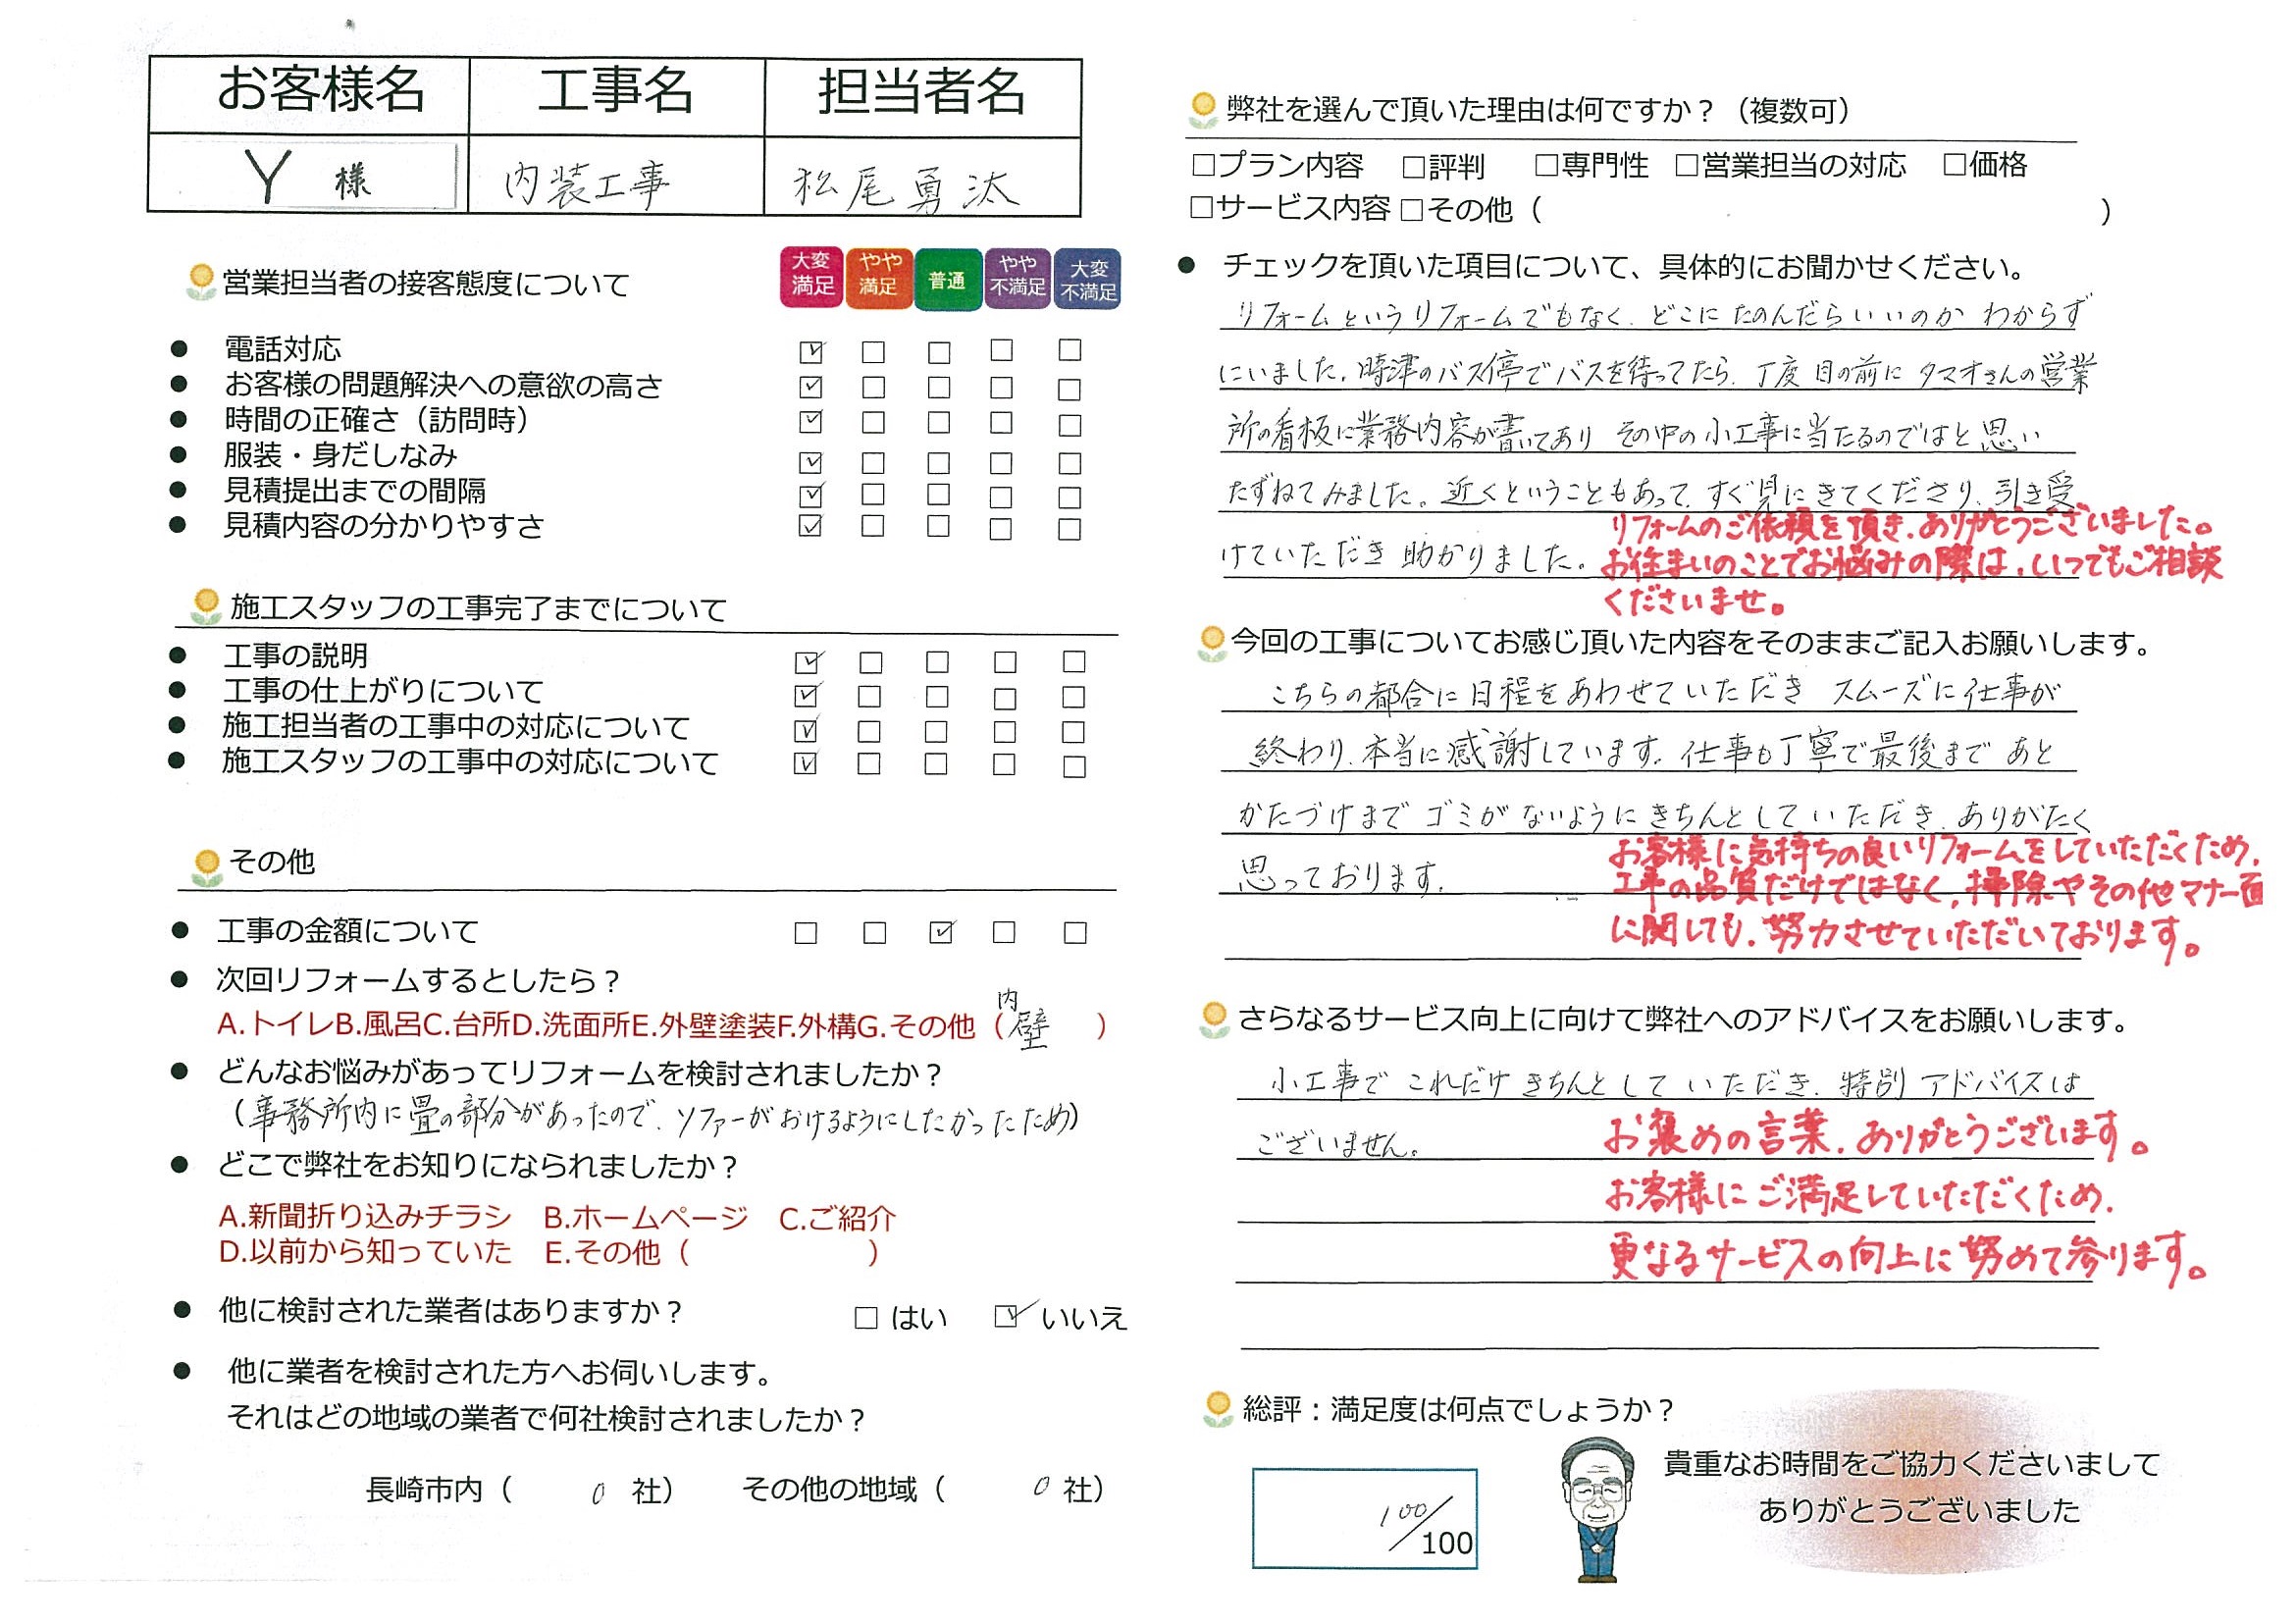 お客様名 工事名 担当者名
Y 様 内装工事 松尾勇汰
営業担当者の接客態度について
大変満足 やや満足 普通 やや不満足 大変不満足
● 電話対応 ☑ □ □ □ □
● お客様の問題解決への意欲の高さ ☑ □ □ □ □
● 時間の正確さ（訪問時） ☑ □ □ □ □
● 服装・身だしなみ ☑ □ □ □ □
● 見積提出までの間隔 ☑ □ □ □ □
● 見積内容の分かりやすさ ☑ □ □ □ □
施工スタッフの工事完了までについて
● 工事の説明 ☑ □ □ □ □
● 工事の仕上がりについて ☑ □ □ □ □
● 施工担当者の工事中の対応について ☑ □ □ □ □
● 施工スタッフの工事中の対応について ☑ □ □ □ □
その他
● 工事の金額について □ □ ☑ □ □
● 次回リフォームするとしたら？
A.トイレB.風呂C.台所D.洗面所E.外壁塗装F.外構G.その他（内壁）
● どんなお悩みがあってリフォームを検討されましたか？
（事務所内に畳の部分があったので、ソファーがおけるようにしたかったため）
● どこで弊社をお知りになられましたか？
A.新聞折り込みチラシ B.ホームページ C.ご紹介
D.以前から知っていた E.その他（ ）
● 他に検討された業者はありますか？ □ はい ☑ いいえ
● 他に業者を検討された方へお伺いします。
それはどの地域の業者で何社検討されましたか？
長崎市内（ 0 社） その他の地域（ 0 社）
弊社を選んで頂いた理由は何ですか？（複数可）
□プラン内容 □評判 □専門性 □営業担当の対応 □価格
□サービス内容 □その他（ ）
● チェックを頂いた項目について、具体的にお聞かせください。
リフォームというリフォームでもなく、どこにたのんだらいいのか わからず
にいました。時津のバス停でバスを待ってたら、丁度目の前にタマオさんの営業
所の看板に業務内容が書いてあり その中の小工事に当たるのではと思い
たずねてみました。近くということもあって、すぐ見にきてくださり、引き受
けていただき助かりました。
リフォームのご依頼を頂き、ありがとうございました。
お住まいのことでお悩みの際は、いつでもご相談
くださいませ。
今回の工事についてお感じ頂いた内容をそのままご記入お願いします。
こちらの都合に日程をあわせていただき スムーズに仕事が
終わり、本当に感謝しています。仕事も丁寧で最後まで あと
かたづけまで ゴミがないように きちんとしていただき、ありがたく
思っております。
お客様に気持ちの良いリフォームをしていただくため、
工事の品質だけではなく、掃除やその他マナー面
に関しても、努力させていただいております。
さらなるサービス向上に向けて弊社へのアドバイスをお願いします。
小工事で これだけ きちんとして いただき、特別 アドバイスは
ございません。
お褒めの言葉、ありがとうございます。
お客様にご満足していただくため、
更なるサービスの向上に努めて参ります。
総評：満足度は何点でしょうか？
100/100
貴重なお時間をご協力くださいまして
ありがとうございました